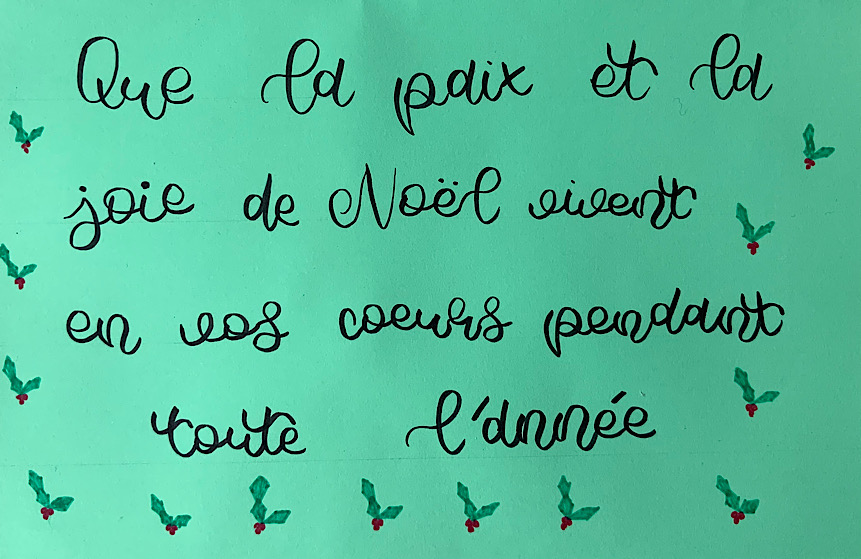 Que la paix et la
joie de Noël vivent
en vos coeurs pendant
toute l'année